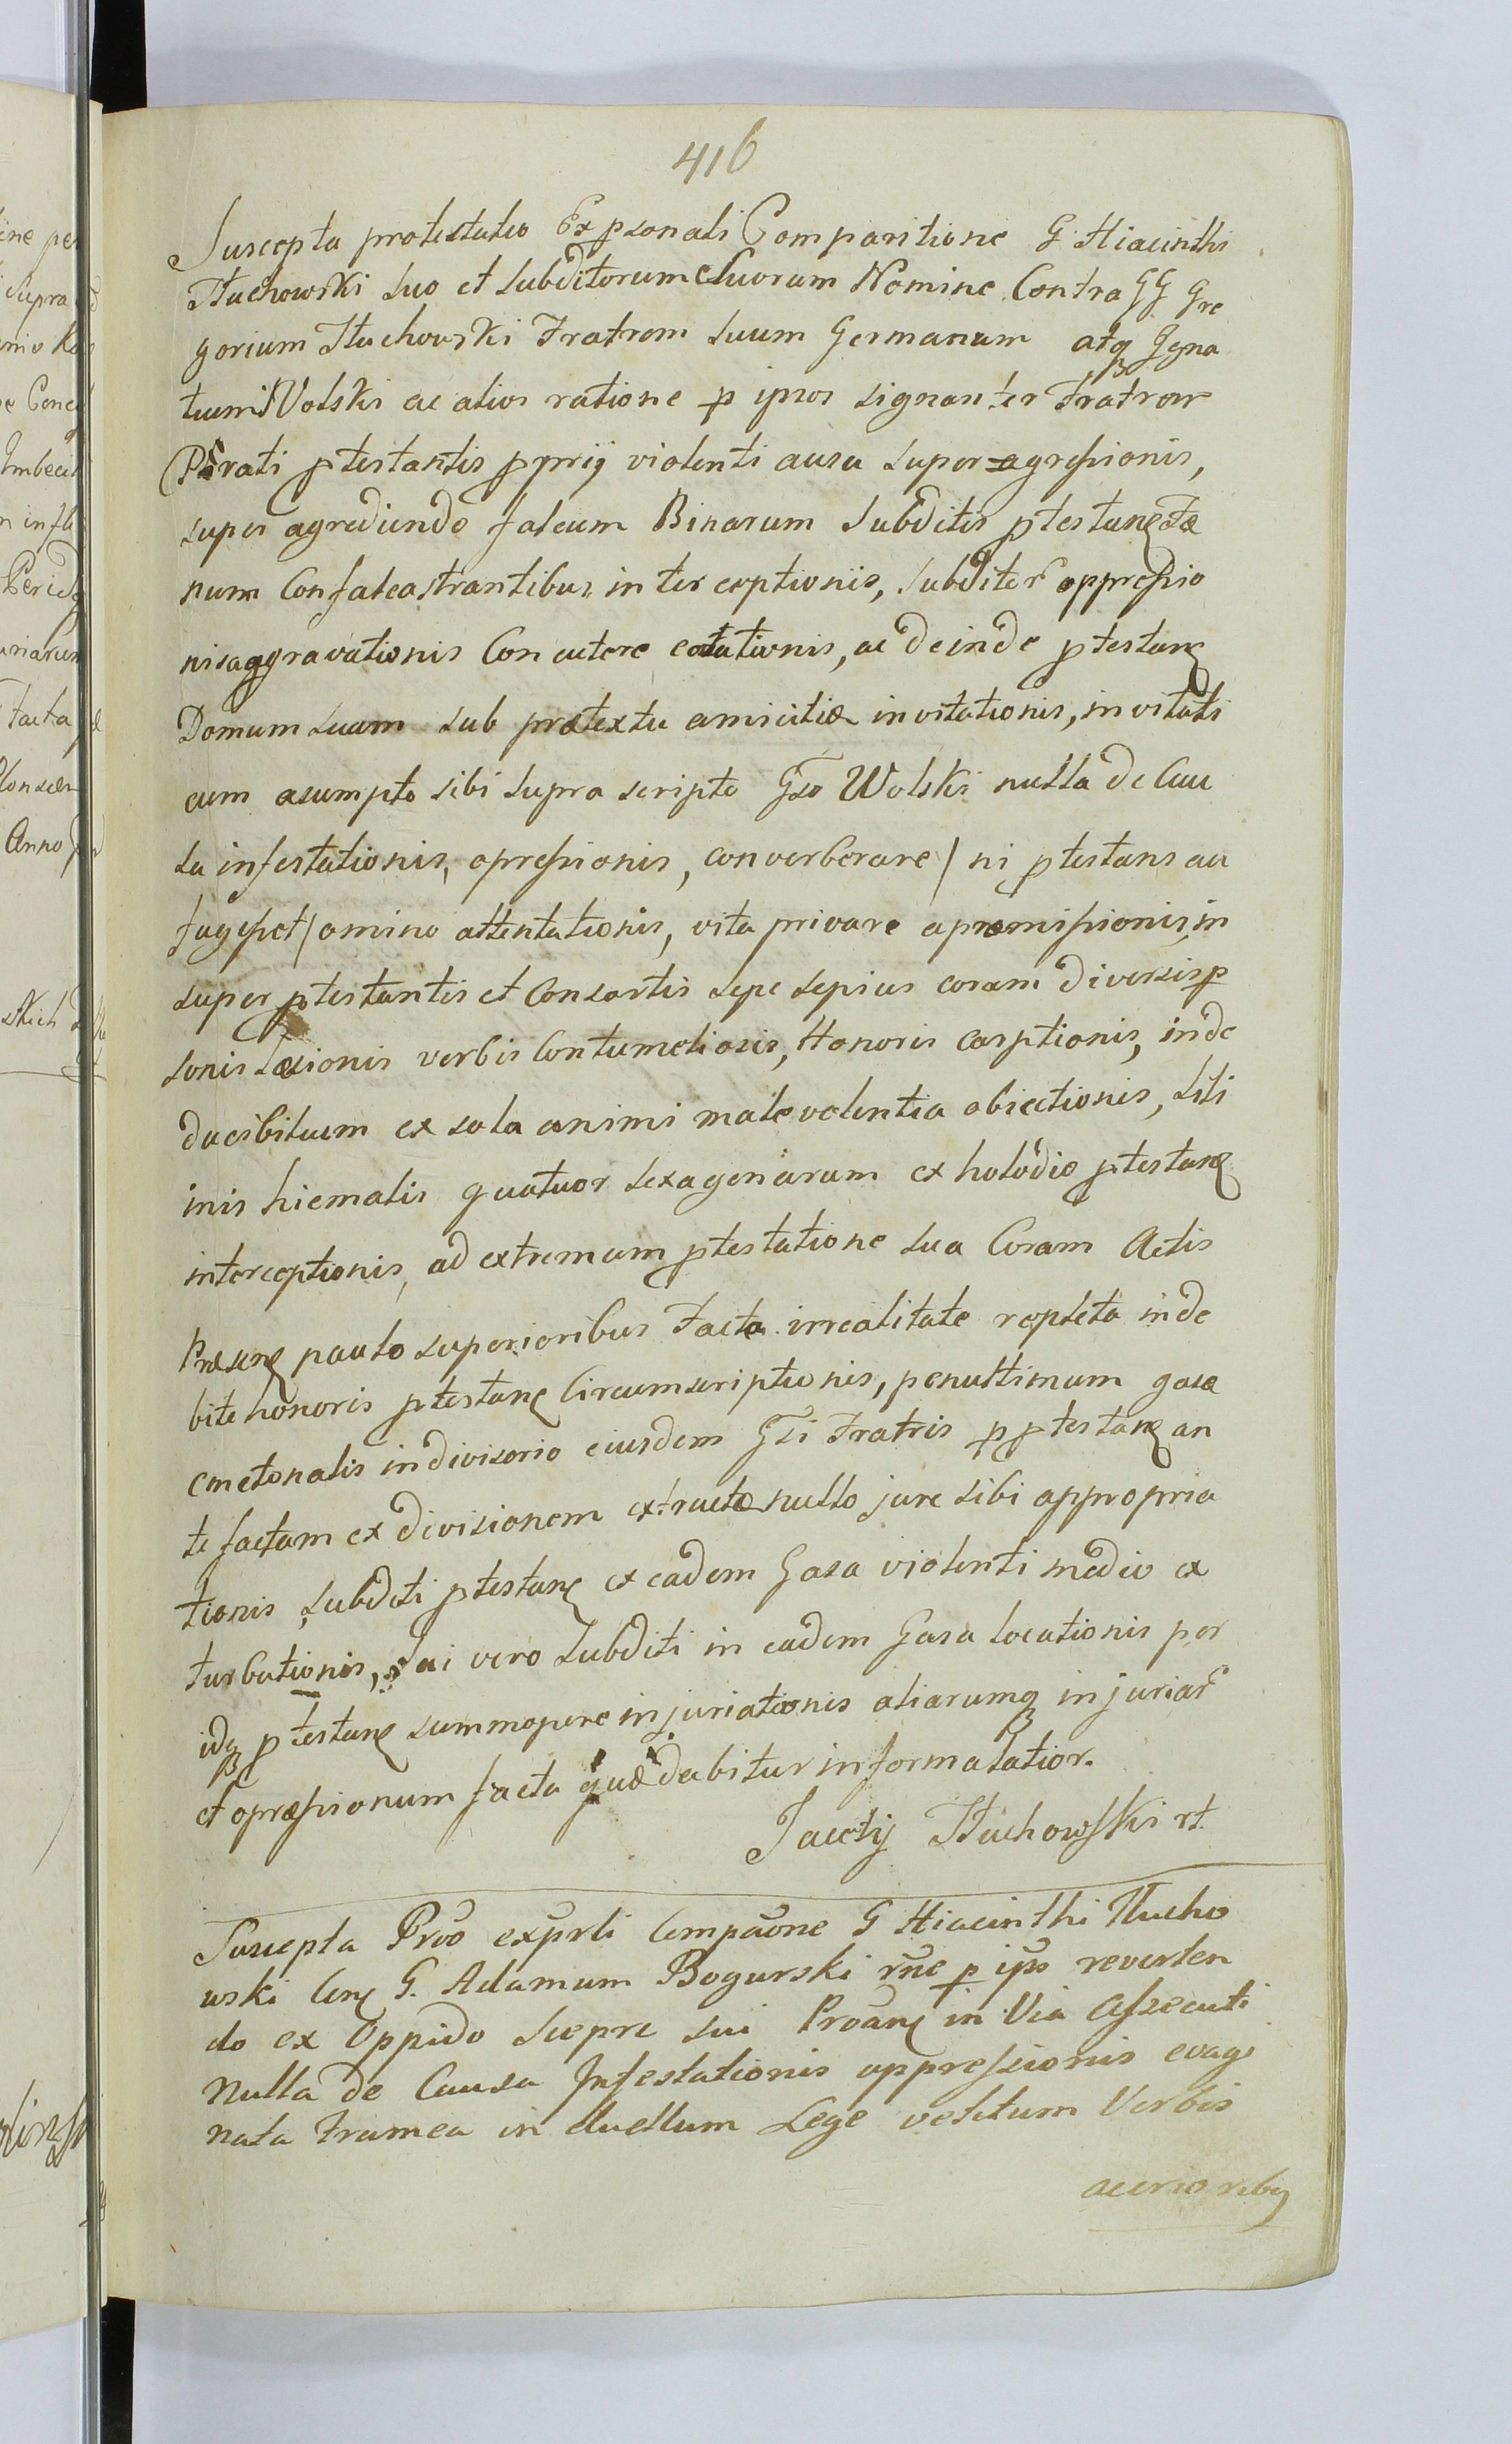 416
Suscepta protestatio Ex psonali Comparitione G Hiacinthi
Tłuchowski suo et subditorum suorum Nomine Contra GG Gre
gorium Tłuchowski Fratrem suum Germanum atq Igna
tium Wolski ac alios ratione p ipsos signanter Fratrem
ptestantis pprij violenti ausu super=agressionis,
super agrediendo falcum Binarum Subditis ptestanę Fæ
num Confalcastrantibus interceptionis, subditor oppressio
nis aggravationis Concutere ... ac deinde ptestanę
Domum suam sub prætextu amicitiæ invitationis, invitati
cum asumpto sibi supra scripto Gso Wolski nulla de Cau
sa infestationis, opressionis, converberare / ni ptestans au
fugisset / omino attentationis, vita privare apromissionis, in
super ptestantis et Consortis sepe sepius coram diversis p
sonis Læsionis verbis Contumeliosis, Honoris carptionis, inde
ducibilium ex sola animi malevolentia obiectionis, sili
inis hiemalis quatuor sexagenarum ex holodio ptestanę
interceptionis, ad extremum ptestatione sua Coram Actis
Præsenę paulo superioribus Facta irrealitate repleta inde
bite honoris ptestanę Circumscriptionis, penultimum gasæ
cmetonalis indivisorio eiusdem Gsi Fratris p ptestanę an
te factam ex divisionem extructæ nullo jure sibi appropria
tionis, subditi ptestanę ex eadem Gasa violenti medio ex
turbationis, sui vero Subditi in eadem Gasa locationis per
idq ptestanę summopere injuriationis aliarumq injuriar
et opræssionum facta quæ dabitur informalatior.
Jacęty Tłuchowski rt
Suscepta Prõo exprli Compaõne G Hiacinthi Tłucho
wski Conę G. Adamum Bogurski rñe p ipso reverten
do ex Oppido Scepre sui Prõanę in Via Assecuti
Nulla de Causa Infestationis oppressionis evagi
nata Framea in duellum Lege vetitum Verbis
acerioribq